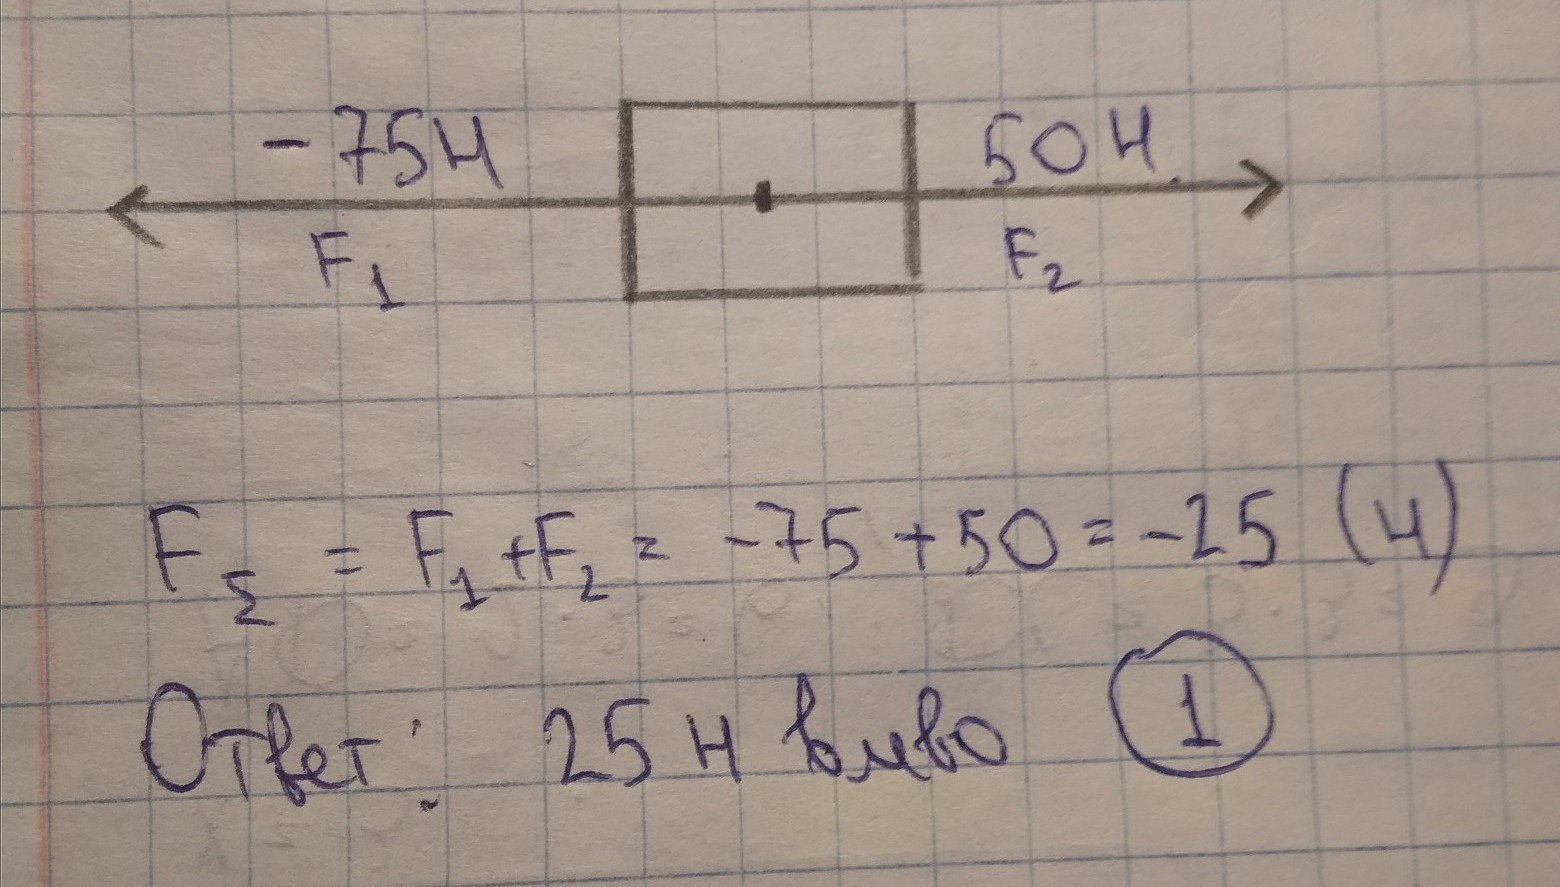 -75Н 50Н.
F₁ F₂
F_Σ = F₁ + F₂ = -75 + 50 = -25 (Н)
Ответ: 25 Н влево 1